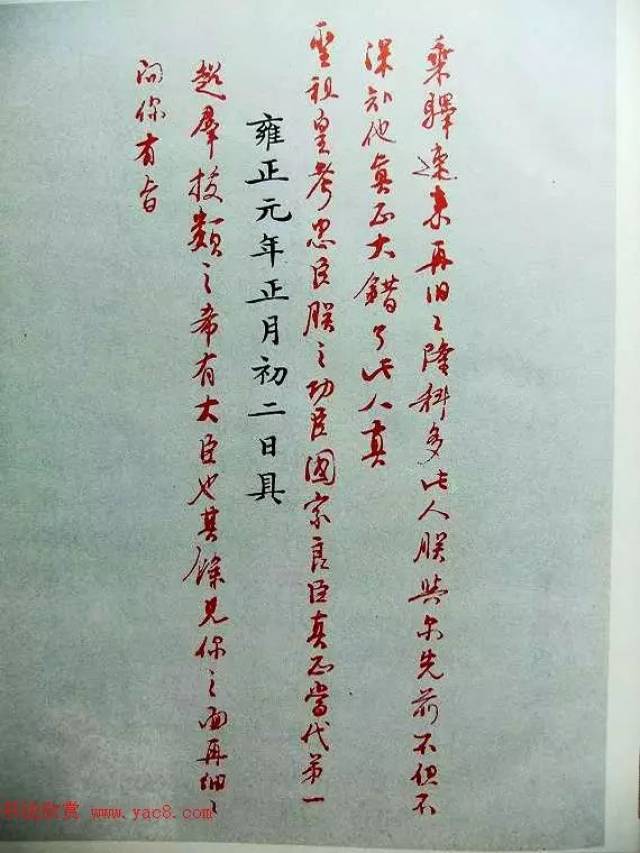 乘驛速來再旧〻隆科多此人朕與尔先前不但不
深知他真正大錯了此人真
聖祖皇考忠臣朕之功臣國家良臣真正當代第一
雍正元年正月初二日具
超羣拔類之希有大臣也其餘見你之面再細〻
問你有旨
书法欣赏 www.yac8.com